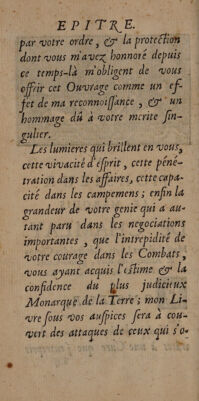 EPITRE.
par votre ordre, & la protection
dont vous m'avez honnoré depuis
ce temps-là m'obligent de vous
offrir cet Ouvrage comme un ef-
fet de ma reconnoissance, & un
hommage dû à votre merite sin-
gulier.
Les lumieres qui brillent en vous,
cette vivacité d'esprit, cette péné-
tration dans les affaires, cette capa-
cité dans les campemens; enfin la
grandeur de votre genie qui a au-
tant paru dans les negociations
importantes, que l'intrepidité de
votre courage dans les Combats,
vous ayant acquis l'estime & la
confidence du plus judicieux
Monarque de la Terre; mon Li-
vre sous vos auspices sera à cou-
vert des attaques de ceux qui s'o-